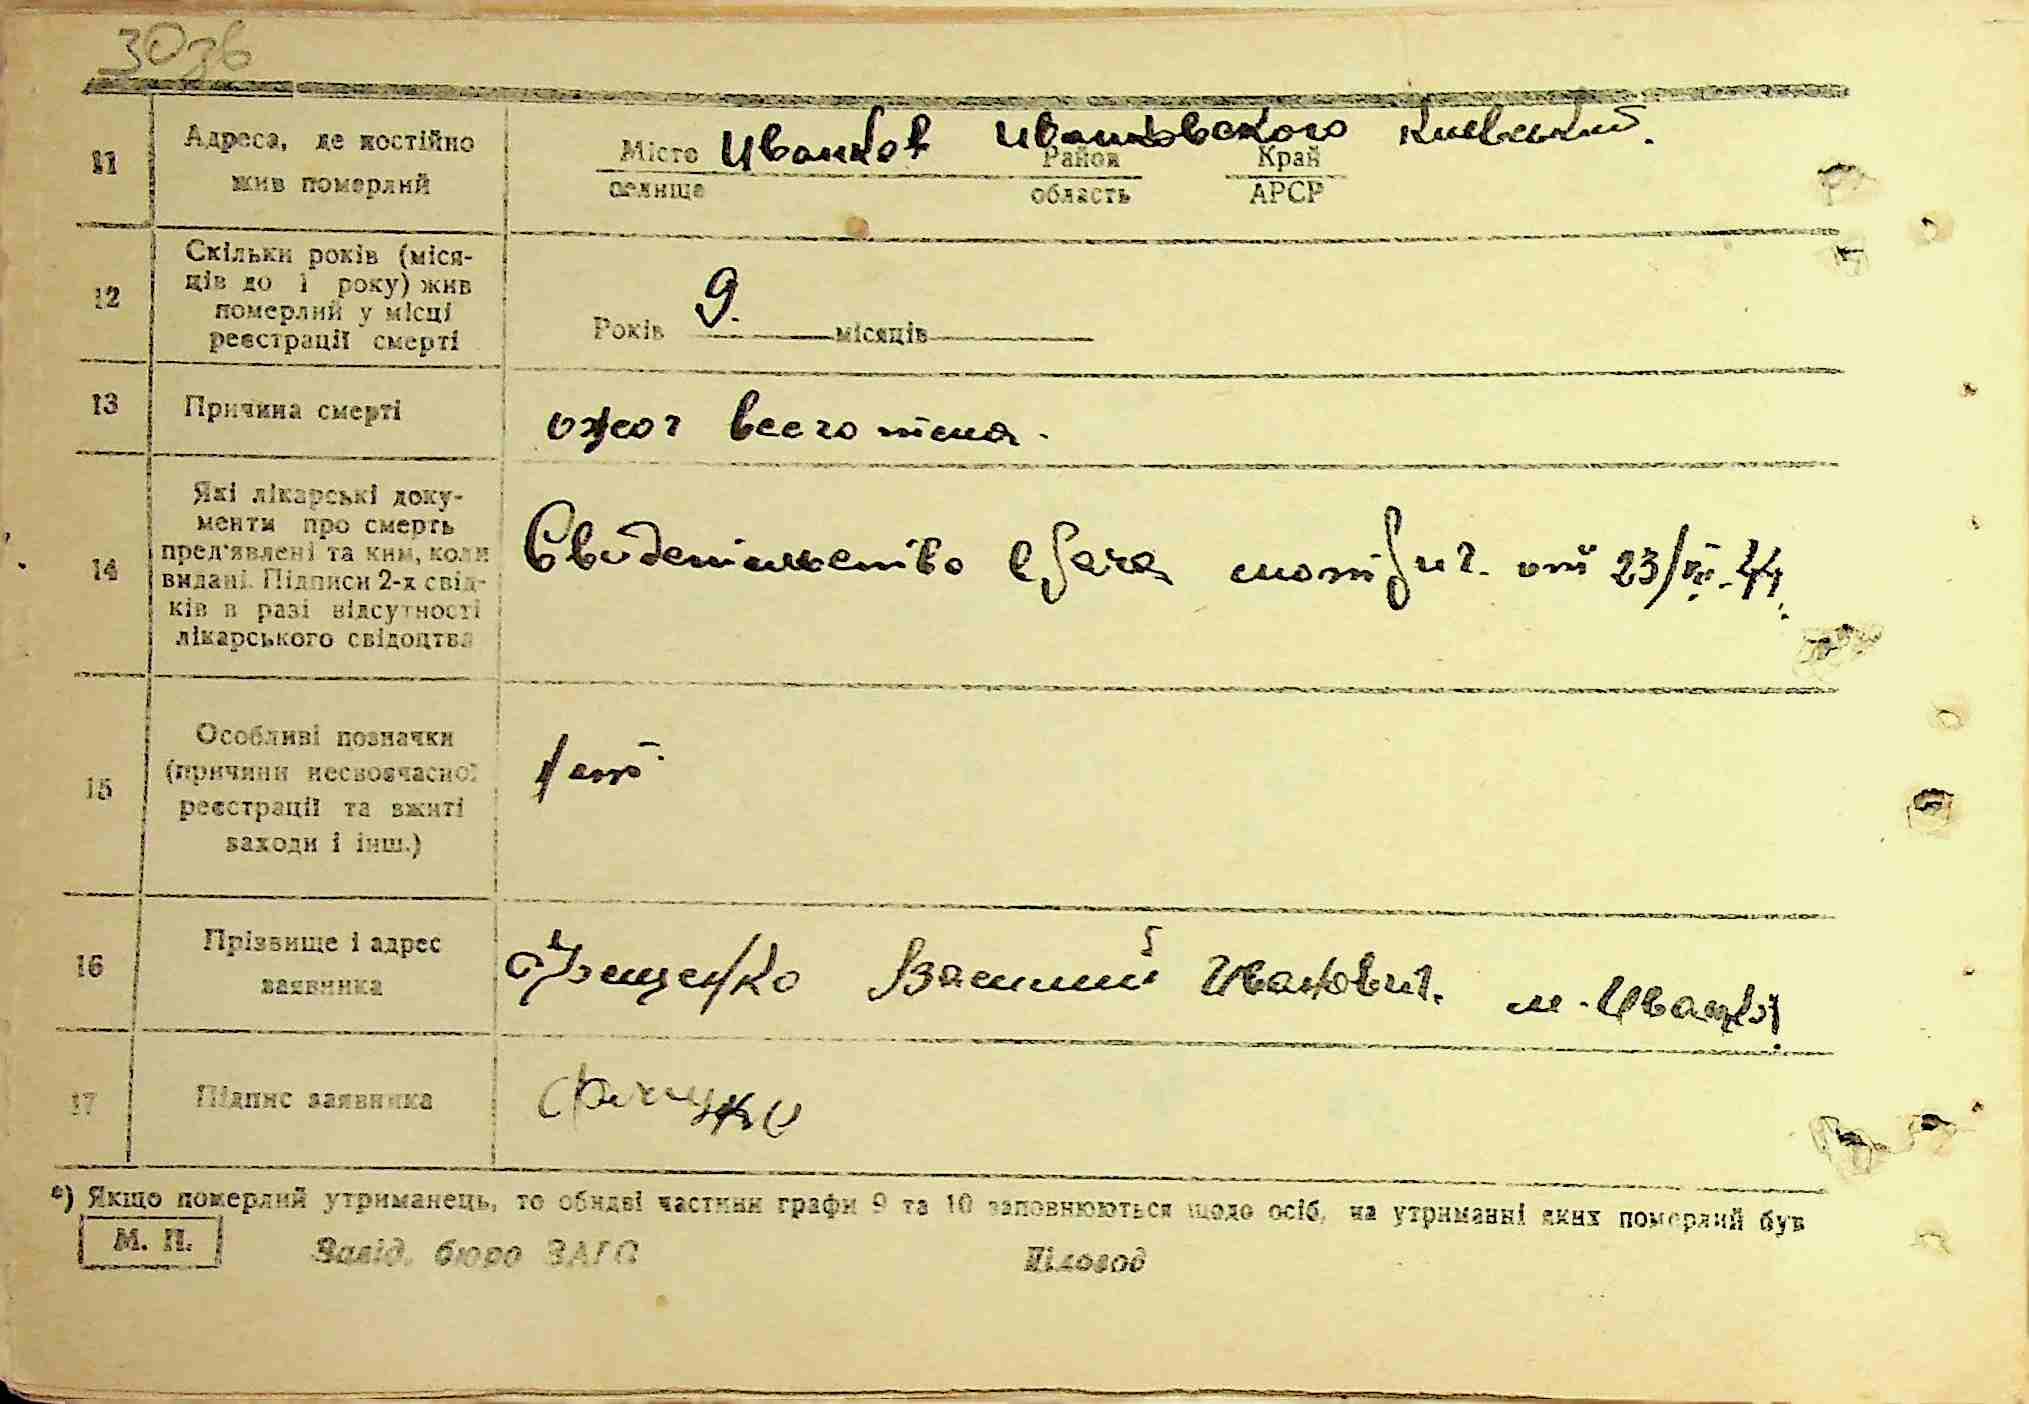 30зв
11
Адреса, де постійно
жив померлий
Місто Иванков Иванковского Киевский.
селище
Район
область
Край
АРСР
12
Скільки років (міся-
ців до 1 року) жив
померлий у місці
реєстрації смерті
Років 9. місяців
13
Причина смерті
ожог всего тела.
14
Які лікарські доку-
менти про смерть
пред'явлені та ким, коли
видані. Підписи 2-х свід-
ків в разі відсутності
лікарського свідоцтва
Свидетельство врача от 23/ 44
15
Особливі позначки
(причини несвоєчасної
реєстрації та вжиті
заходи і інш.)
16
Прізвище і адрес
заявника
Василий Иванович. м. Иванков
17
Підпис заявника
*) Якщо померлий утриманець, то обидві частини графи 9 та 10 заповнюються щодо осіб, на утриманні яких померлий був
М. П.
Завід. бюро ЗАГС
Діловод